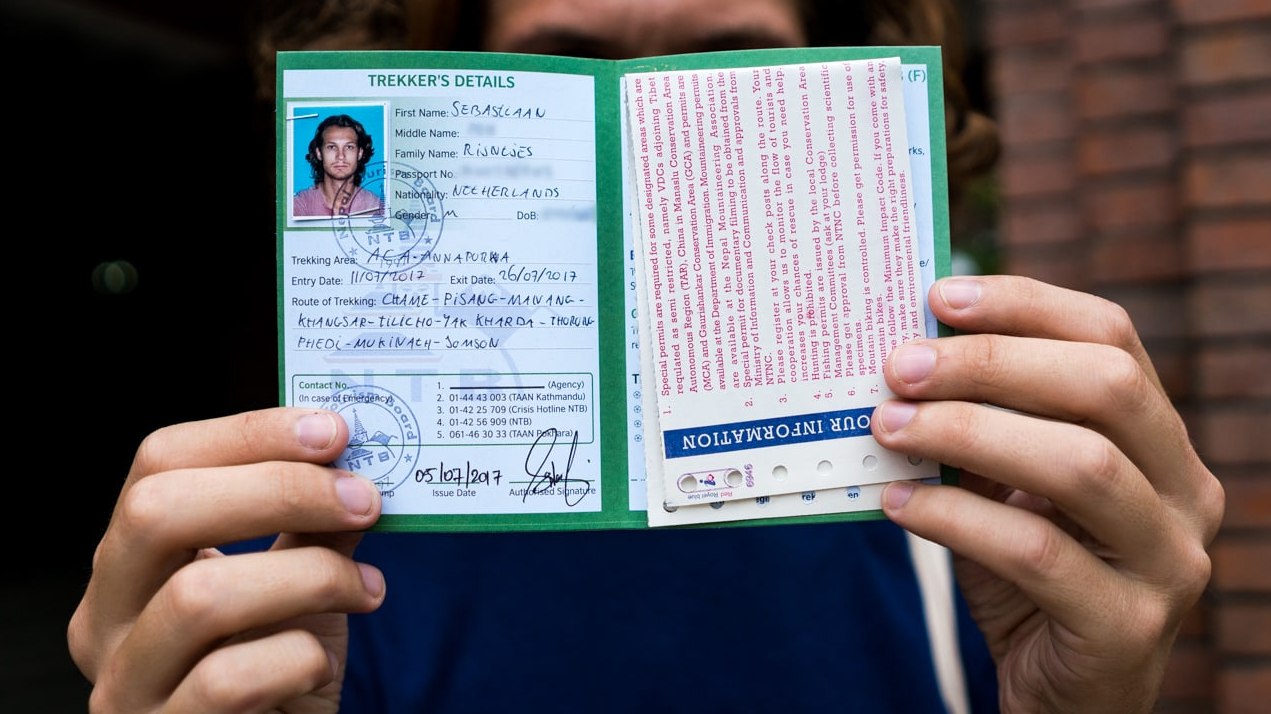 TREKKER'S DETAILS
First Name: SEBASTIAAN
Middle Name:
Family Name: RIJNTJES
Passport No.
Nationality: NETHERLANDS
Gender: M DoB:
Trekking Area: ACA-ANNAPURNA
Entry Date: 11/07/2017 Exit Date: 26/07/2017
Route of Trekking: CHAME-PISANG-MANANG-
KHANGSAR-TILICHO-YAK KHARDA-THORUNG
PHEDI-MUKINATH-JOMSON
Contact No.
(In case of Emergency)
1. (Agency)
2. 01-44 43 003 (TAAN Kathmandu)
3. 01-42 25 709 (Crisis Hotline NTB)
4. 01-42 56 909 (NTB)
5. 061-46 30 33 (TAAN Pokhara)
05/07/2017
Issue Date Authorised Signature
Nepal Tourism Board
NTB
NTB
Board
NTB
(F)
rks,
OUR INFORMATION
1. Special permits are required for some designated areas which are
requlated as semi restricted, namely VDCs adjoining Tibet
Autonomous Region (TAR), China in Manaslu Conservation Area
(MCA) and Gaurishankar Conservation Area (GCA) and permits are
available at the Department of Immigration. Mountaineering permits
are available at the Nepal Mountaineering Association.
2. Special permit for documentary filming to be obtained from the
Ministry of Information and Communication and approvals from
NTNC.
3. Please register at your check posts along the route. Your
cooperation allows us to monitor the flow of tourists and
increases your chances of rescue in case you need help.
4. Hunting is prohibited.
5. Fishing permits are issued by the local Conservation Area
Management Committees (ask at your lodge)
6. Please get approval from NTNC before collecting scientific
specimens.
7. Moutain biking is controlled. Please get permission for use of
mountain bikes.
se follow the Minimum Impact Code. If you come with an
y, make sure they make the right preparations for safety,
y and environmental friendliness.
Red Royal blue
6946